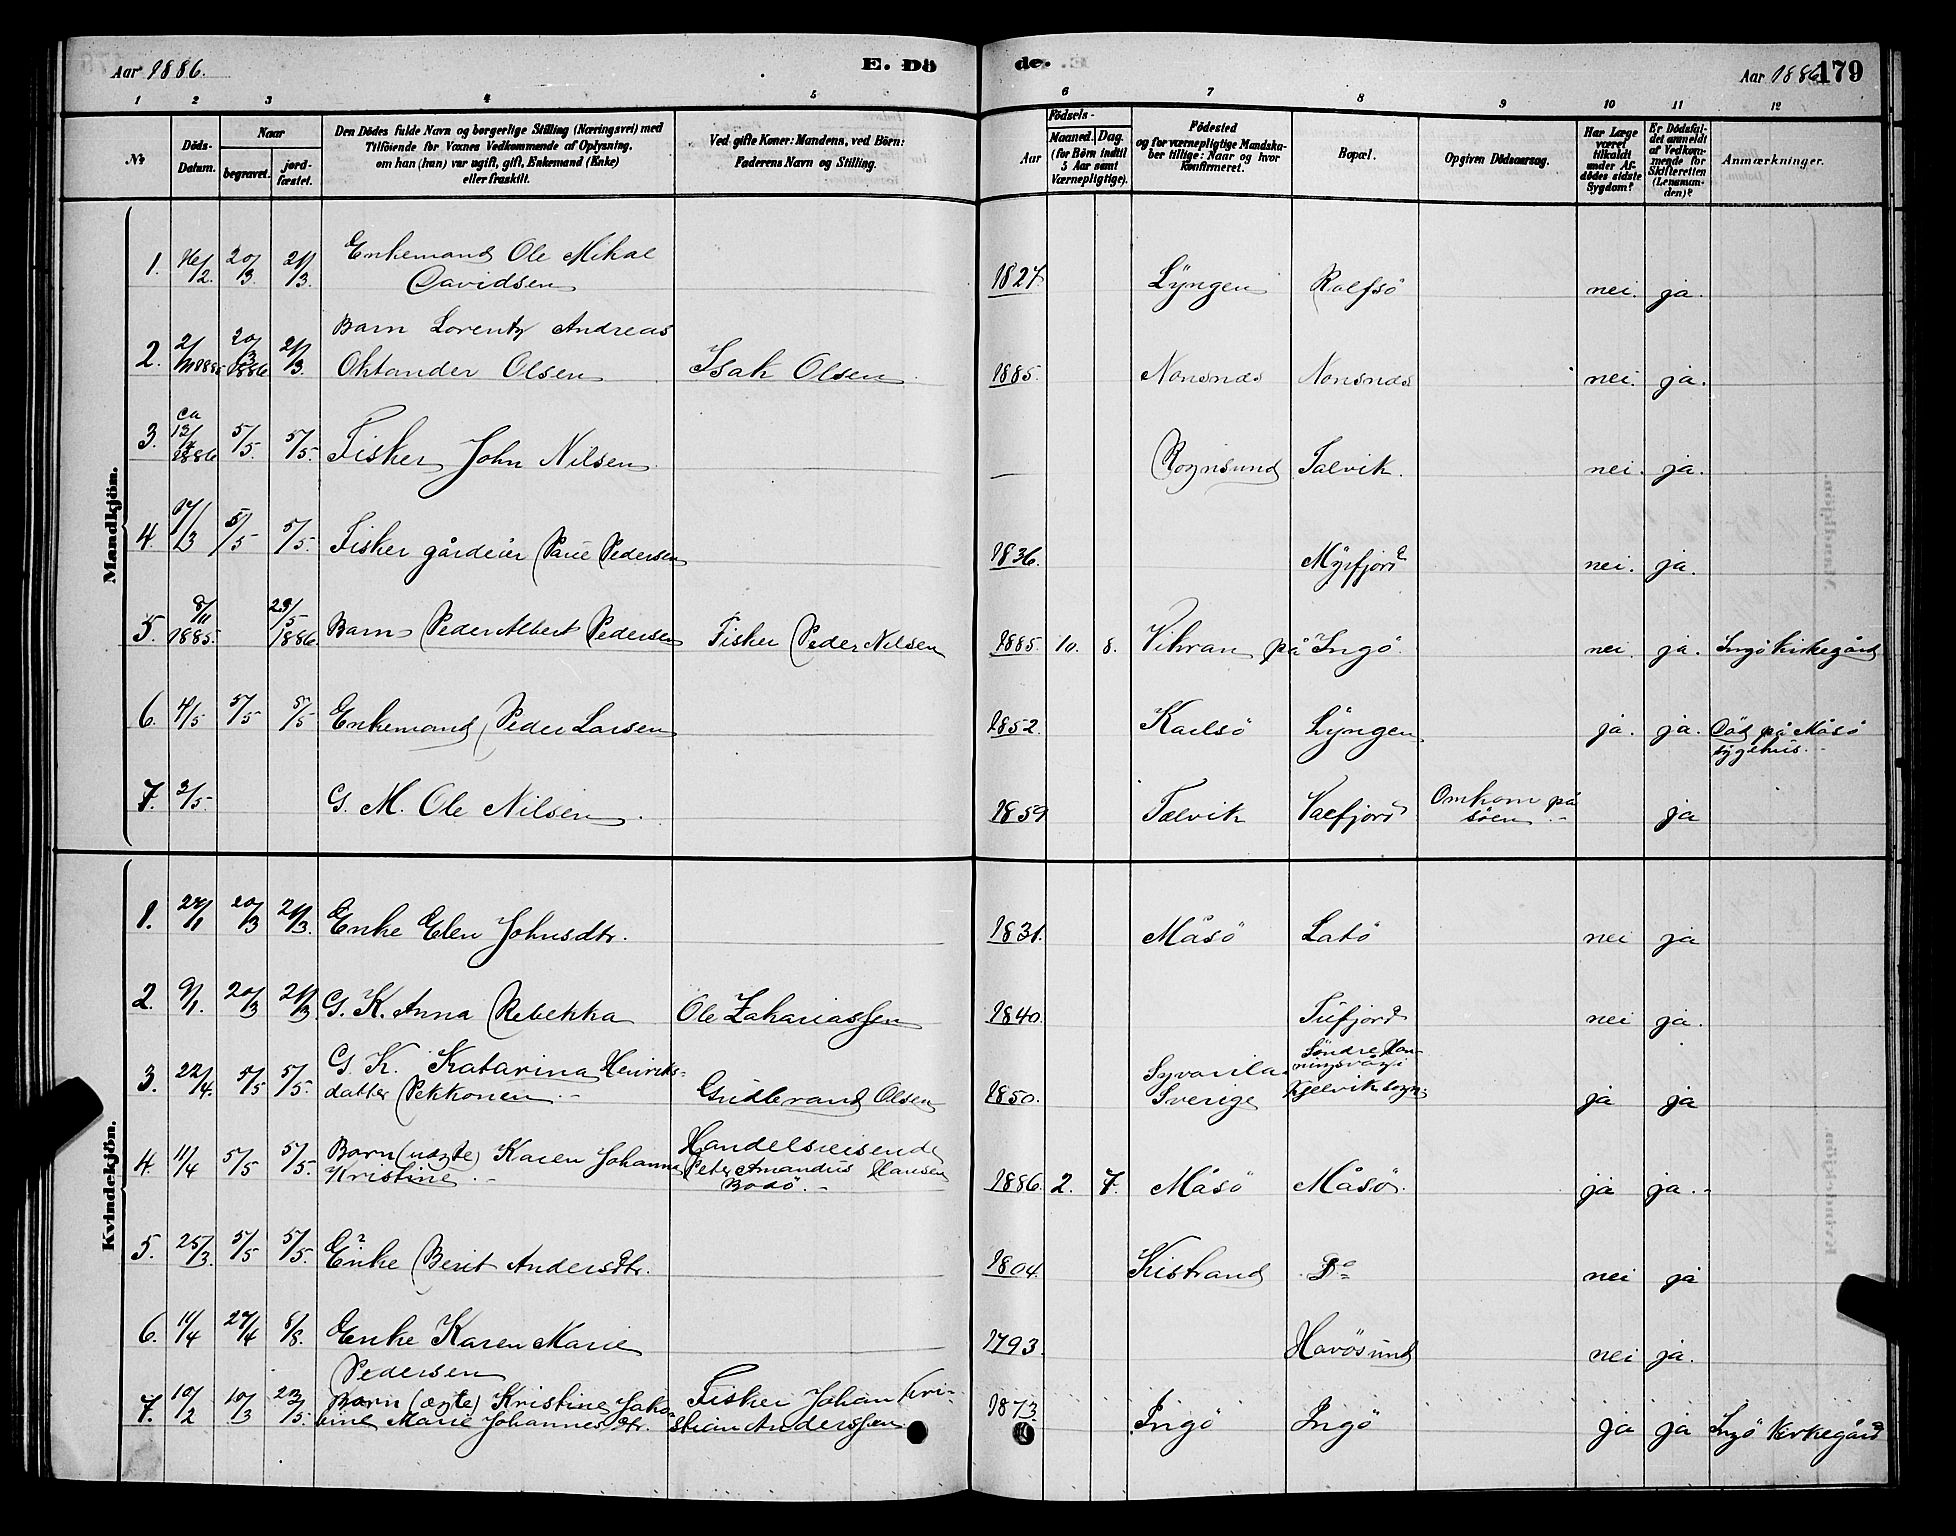 Aar 1886.
E. Dö
de.
Aar 1886
179
1 2 3 4 5 6 7 8 9 10 11 12
No
Döds-
Datum.
Naar
begravet.
jord-
fæstet.
Den Dödes fulde Navn og borgerlige Stilling (Næringsvei) med
Tilföiende for Voxnes Vedkommende af Oplysning,
om han (hun) var ugift, gift, Enkemand (Enke)
eller fraskilt.
Ved gifte Koner: Mandens, ved Börn:
Faderens Navn og Stilling.
Födsels-
Aar
Maaned. Dag.
(for Börn indtil
5 Aar samt
Værnepligtige).
Födested
og for værnepligtige Mandska-
ber tillige: Naar og hvor
konfirmeret.
Bopæl.
Opgiven Dödsaarsag.
Har Læge
været
tilkaldt
under Af-
dödes sidste
Sygdom?
Er Dödsfal-
det anmeldt
af Vedkom-
mende for
Skifteretten
(Lensman-
den)?
Anmærkninger.
Mandkjön.
1. 16/2. 20/3. 21/3. Enkemand Ole Mikal
Davidsen 1827 Lyngen Rolfsö nei. ja.
Barn Lorentz Andreas
2. 2/11 1885 20/3 1886 21/3. Oktander Olsen Isak Olsen 1885. Nonsnæs Nonsnæs nei. ja.
3. ca 13/4 1886 5/5. 5/5. Fisker John Nilsen Rognsund Talvik. nei. ja.
4. 17/3 5/5 5/5. Fisker gårdeier Paul Pedersen 1836. Myrfjord nei. ja.
5. 8/11 1885. 29/5 1886. Barn Peder Albert Pedersen Fisker Peder Nilsen 1885. 10. 8. Vikran på Ingö. nei. ja. Ingö Kirkegård
6. 4/5 5/5 5/5 Enkemand Peder Larsen 1852. Karlsö Lyngen ja. ja. Död på Måsö
sygehus.
7. 3/5. G. M. Ole Nilsen 1859 Talvik Omkom på
söen ja
Kvindekjön.
1. 20/3 21/3. Enke Elen Johnsdtr. 1831. Måsö Latö nei ja
2. 9/1. 20/3 21/3 G. K. Anna Rebekka Ole Zahariassen 1840. Tufjord nei ja.
3. 22/4. 5/5 5/5. G. K. Katarina Henriks-
datter Pekkonen Gudbrand Olsen 1850. Sverige Söndre Hon-
ningsvåg i
Kjelvik sogn. ja ja
4. 11/4 5/5 5/5. Barn (uægte) Karen Johanna
Kristine Handelsreisende
Peter Amandus Hansen
Bodö. 1886. 2. 7. Måsö Måsö. ja ja.
5. 25/3. 5/5 5/5. Enke Berit Andersdtr. 1804. Kistrand Do nei ja
6. 11/4 27/4 8/8. Enke Karen Marie
Pedersen 1793. Havösund nei ja.
7. 10/2 10/3 23/5. Barn (ægte) Kristine Jako-
bine Marie Johannesdtr. Fisker Johan Kri-
stian Anderssen 1873. Ingö Ingö ja ja Ingö Kirkegård